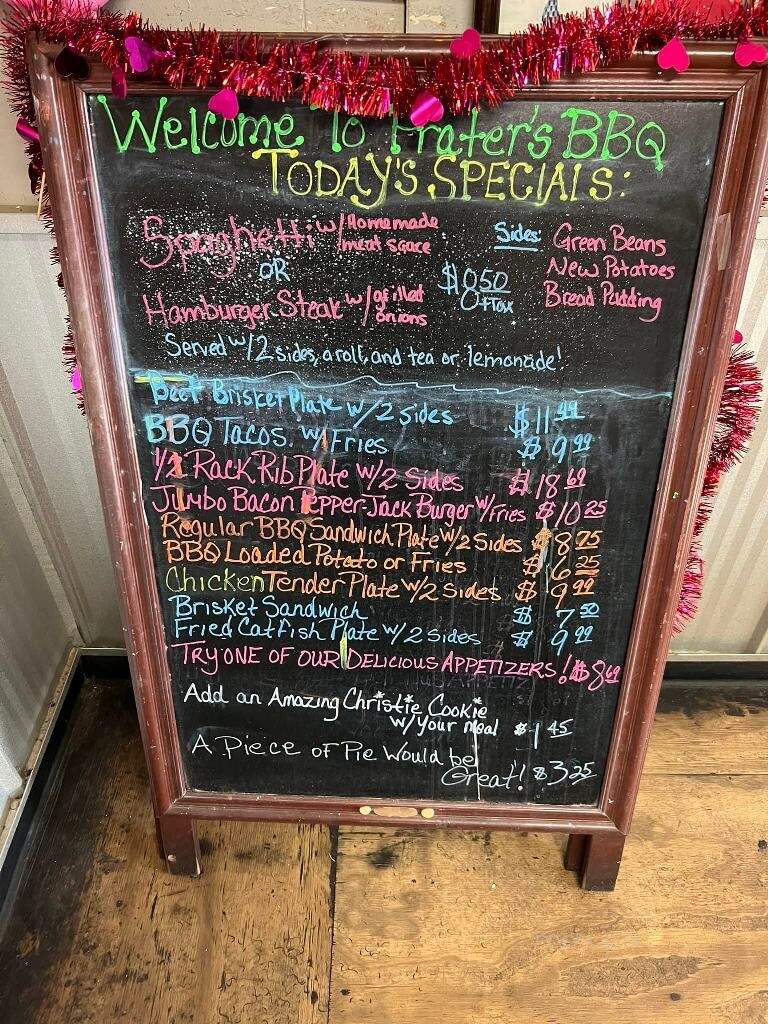 Welcome To Frater's BBQ
TODAY'S SPECIALS:
Spaghetti w/Homemade meat sauce
OR
Hamburger Steak w/grilled onions
$10.50
+Tax
Sides: Green Beans
New Potatoes
Bread Pudding
Served w/2 sides, a roll, and tea or lemonade!
Beef Brisket Plate w/2 sides $11.49
BBQ Tacos w/Fries $9.99
1/2 Rack Rib Plate w/2 Sides $18.69
Jumbo Bacon Pepper-Jack Burger w/Fries $10.25
Regular BBQ Sandwich Plate w/2 Sides $8.75
BBQ Loaded Potato or Fries $6.25
Chicken Tender Plate w/2 Sides $9.99
Brisket Sandwich $7.50
Fried Catfish Plate w/2 sides $9.99
TRY ONE OF OUR DELICIOUS APPETIZERS! $8.69
Add an Amazing Christie Cookie
w/your meal $1.45
A Piece of Pie Would be
Great! $3.25